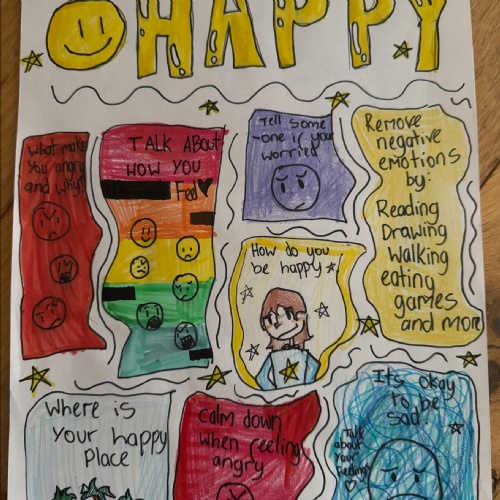 HAPPY
What makes
you angry
and why?
TALK ABOUT
HOW YOU
Feel
Tell some
-one if your
worried
Remove
negative
emotions
by:
Reading
Drawing
Walking
eating
games
and more
How do you
be happy
Where is
your happy
Place
Calm down
when feeling
angry
It's okay
to be
sad!
Talk
about
your
feelings